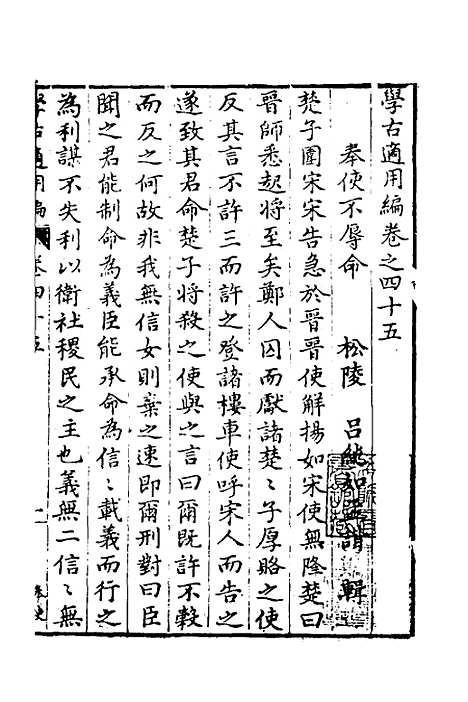 學古適用編卷之四十五
奉使不辱命　松陵　呂純如益　輯
楚子圍宋宋告急於晉晉使解揚如宋使無隆楚曰
晉師悉起將至矣鄭人囚而獻諸楚〻子厚賂之使
反其言不許三而許之登諸樓車使呼宋人而告之
遂致其君命楚子將殺之使與之言曰爾既許不穀
而反之何故非我無信女則棄之速即爾刑對曰臣
聞之君能制命為義臣能承命為信〻載義而行之
為利謀不失利以衛社稷民之主也義無二信〻無
學古適用編　卷四十五　一